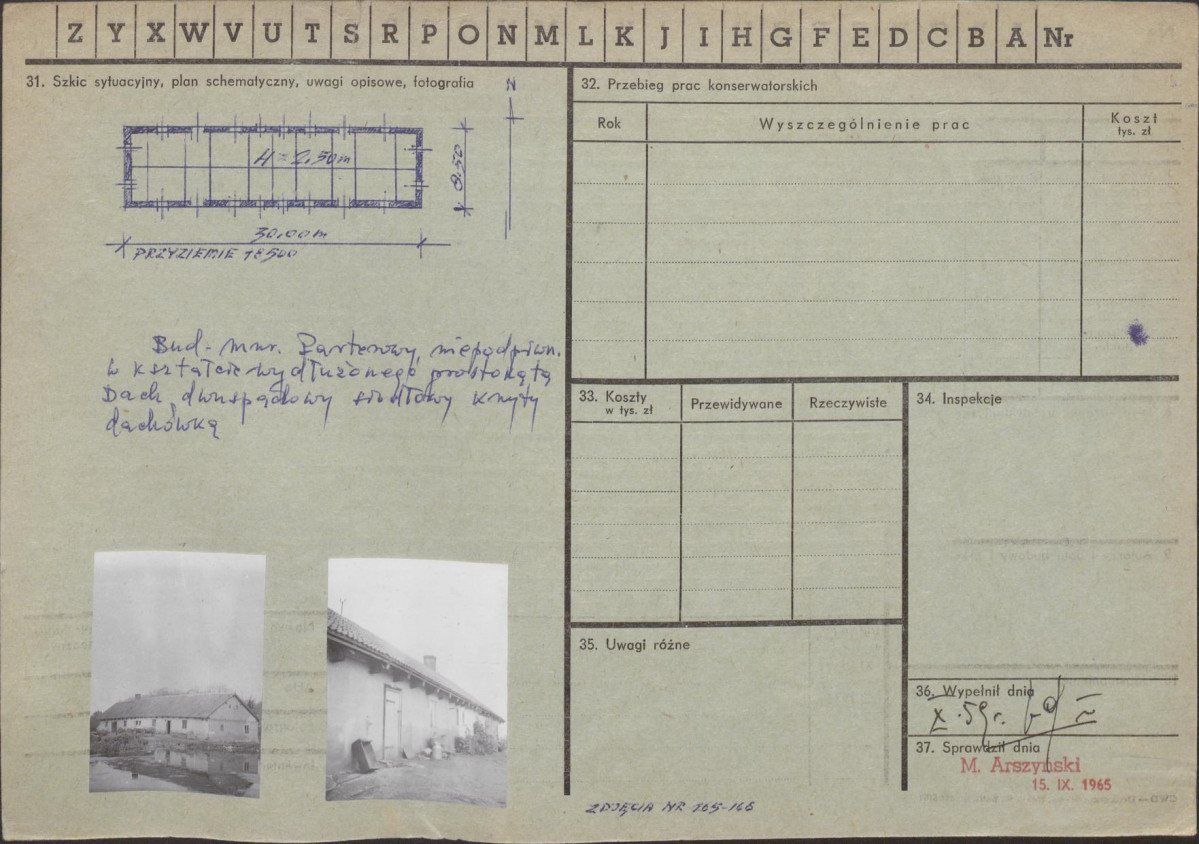 Z Y X W V U T S R P O N M L K J I H G F E D C B A Nr
31. Szkic sytuacyjny, plan schematyczny, uwagi opisowe, fotografia
N
H = 2,50m
8.50
30,00m
PRZYZIEMIE 1:500
Bud. mur. Parterowy, niepodpiwn.
w kształcie wydłużonego prostokąta
Dach dwuspadowy siodłowy kryty
dachówką
32. Przebieg prac konserwatorskich
Rok
Wyszczególnienie prac
Koszt
tys. zł
33. Koszty
w tys. zł
Przewidywane
Rzeczywiste
34. Inspekcje
35. Uwagi różne
36. Wypełnił dnia
X. 59 r.
37. Sprawdził dnia
M. Arszyński
15. IX. 1965
ZDJĘCIA NR 165-166